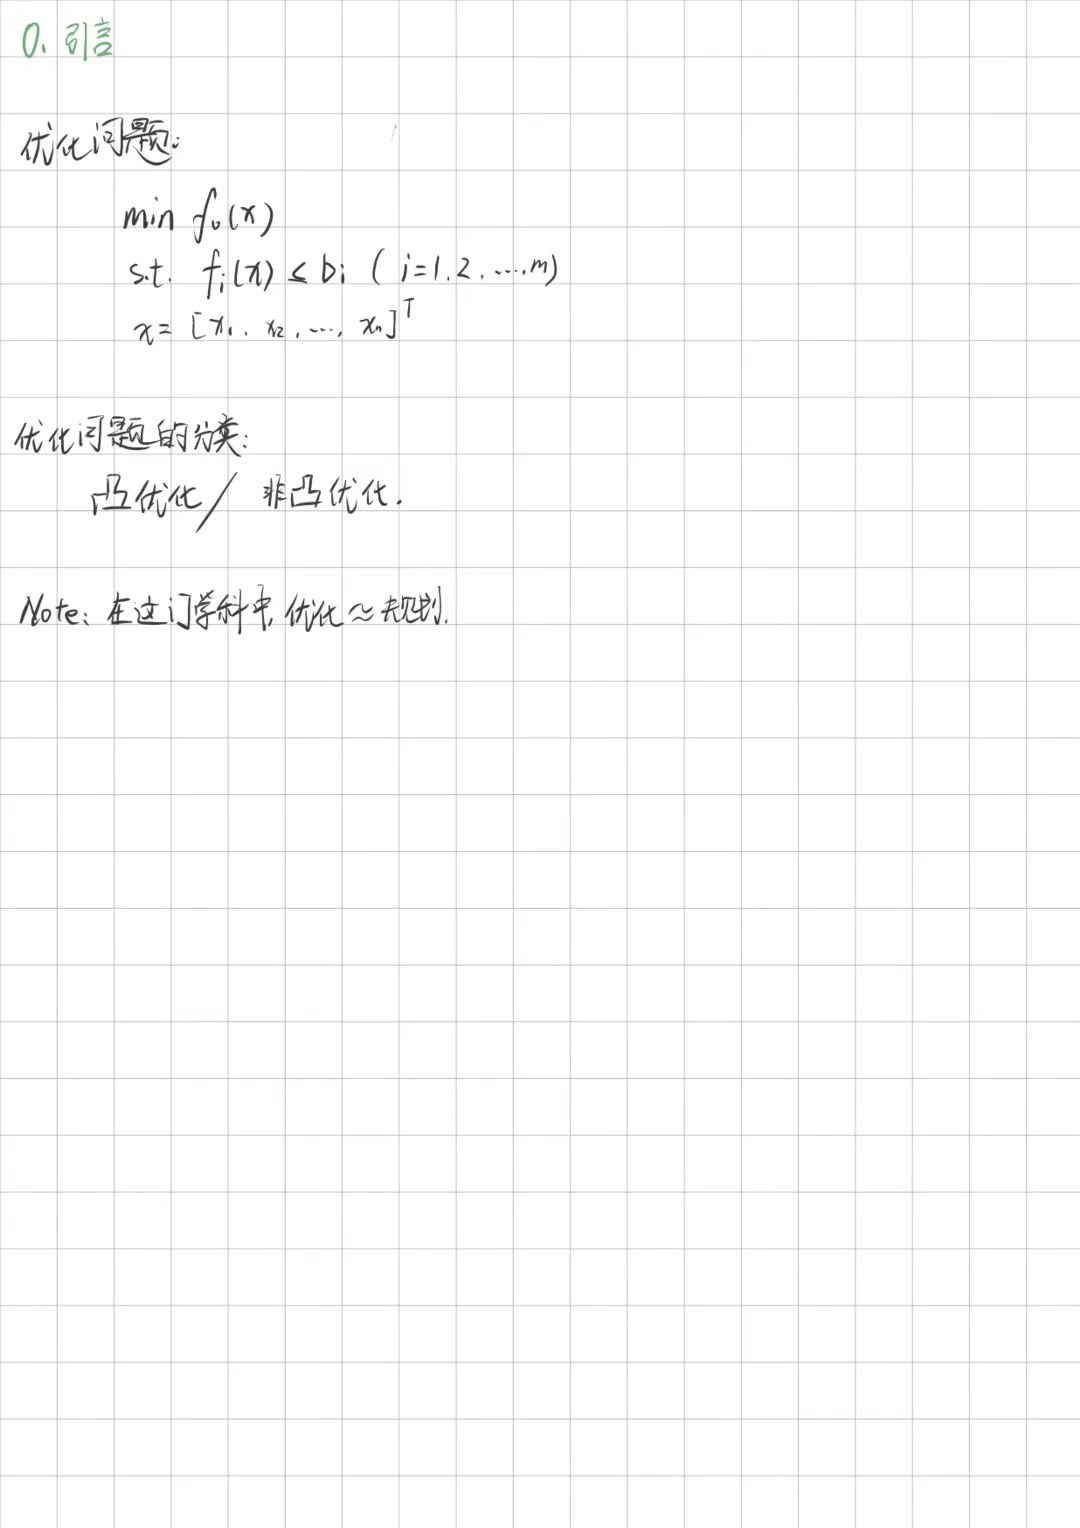 0. 引言
优化问题:
min f₀(x)
s.t. fᵢ(x) ≤ bᵢ (i=1,2,...,m)
x = [x₁, x₂, ..., xₙ]ᵀ
优化问题的分类:
凸优化/ 非凸优化.
Note: 在这门学科中, 优化≈规划.